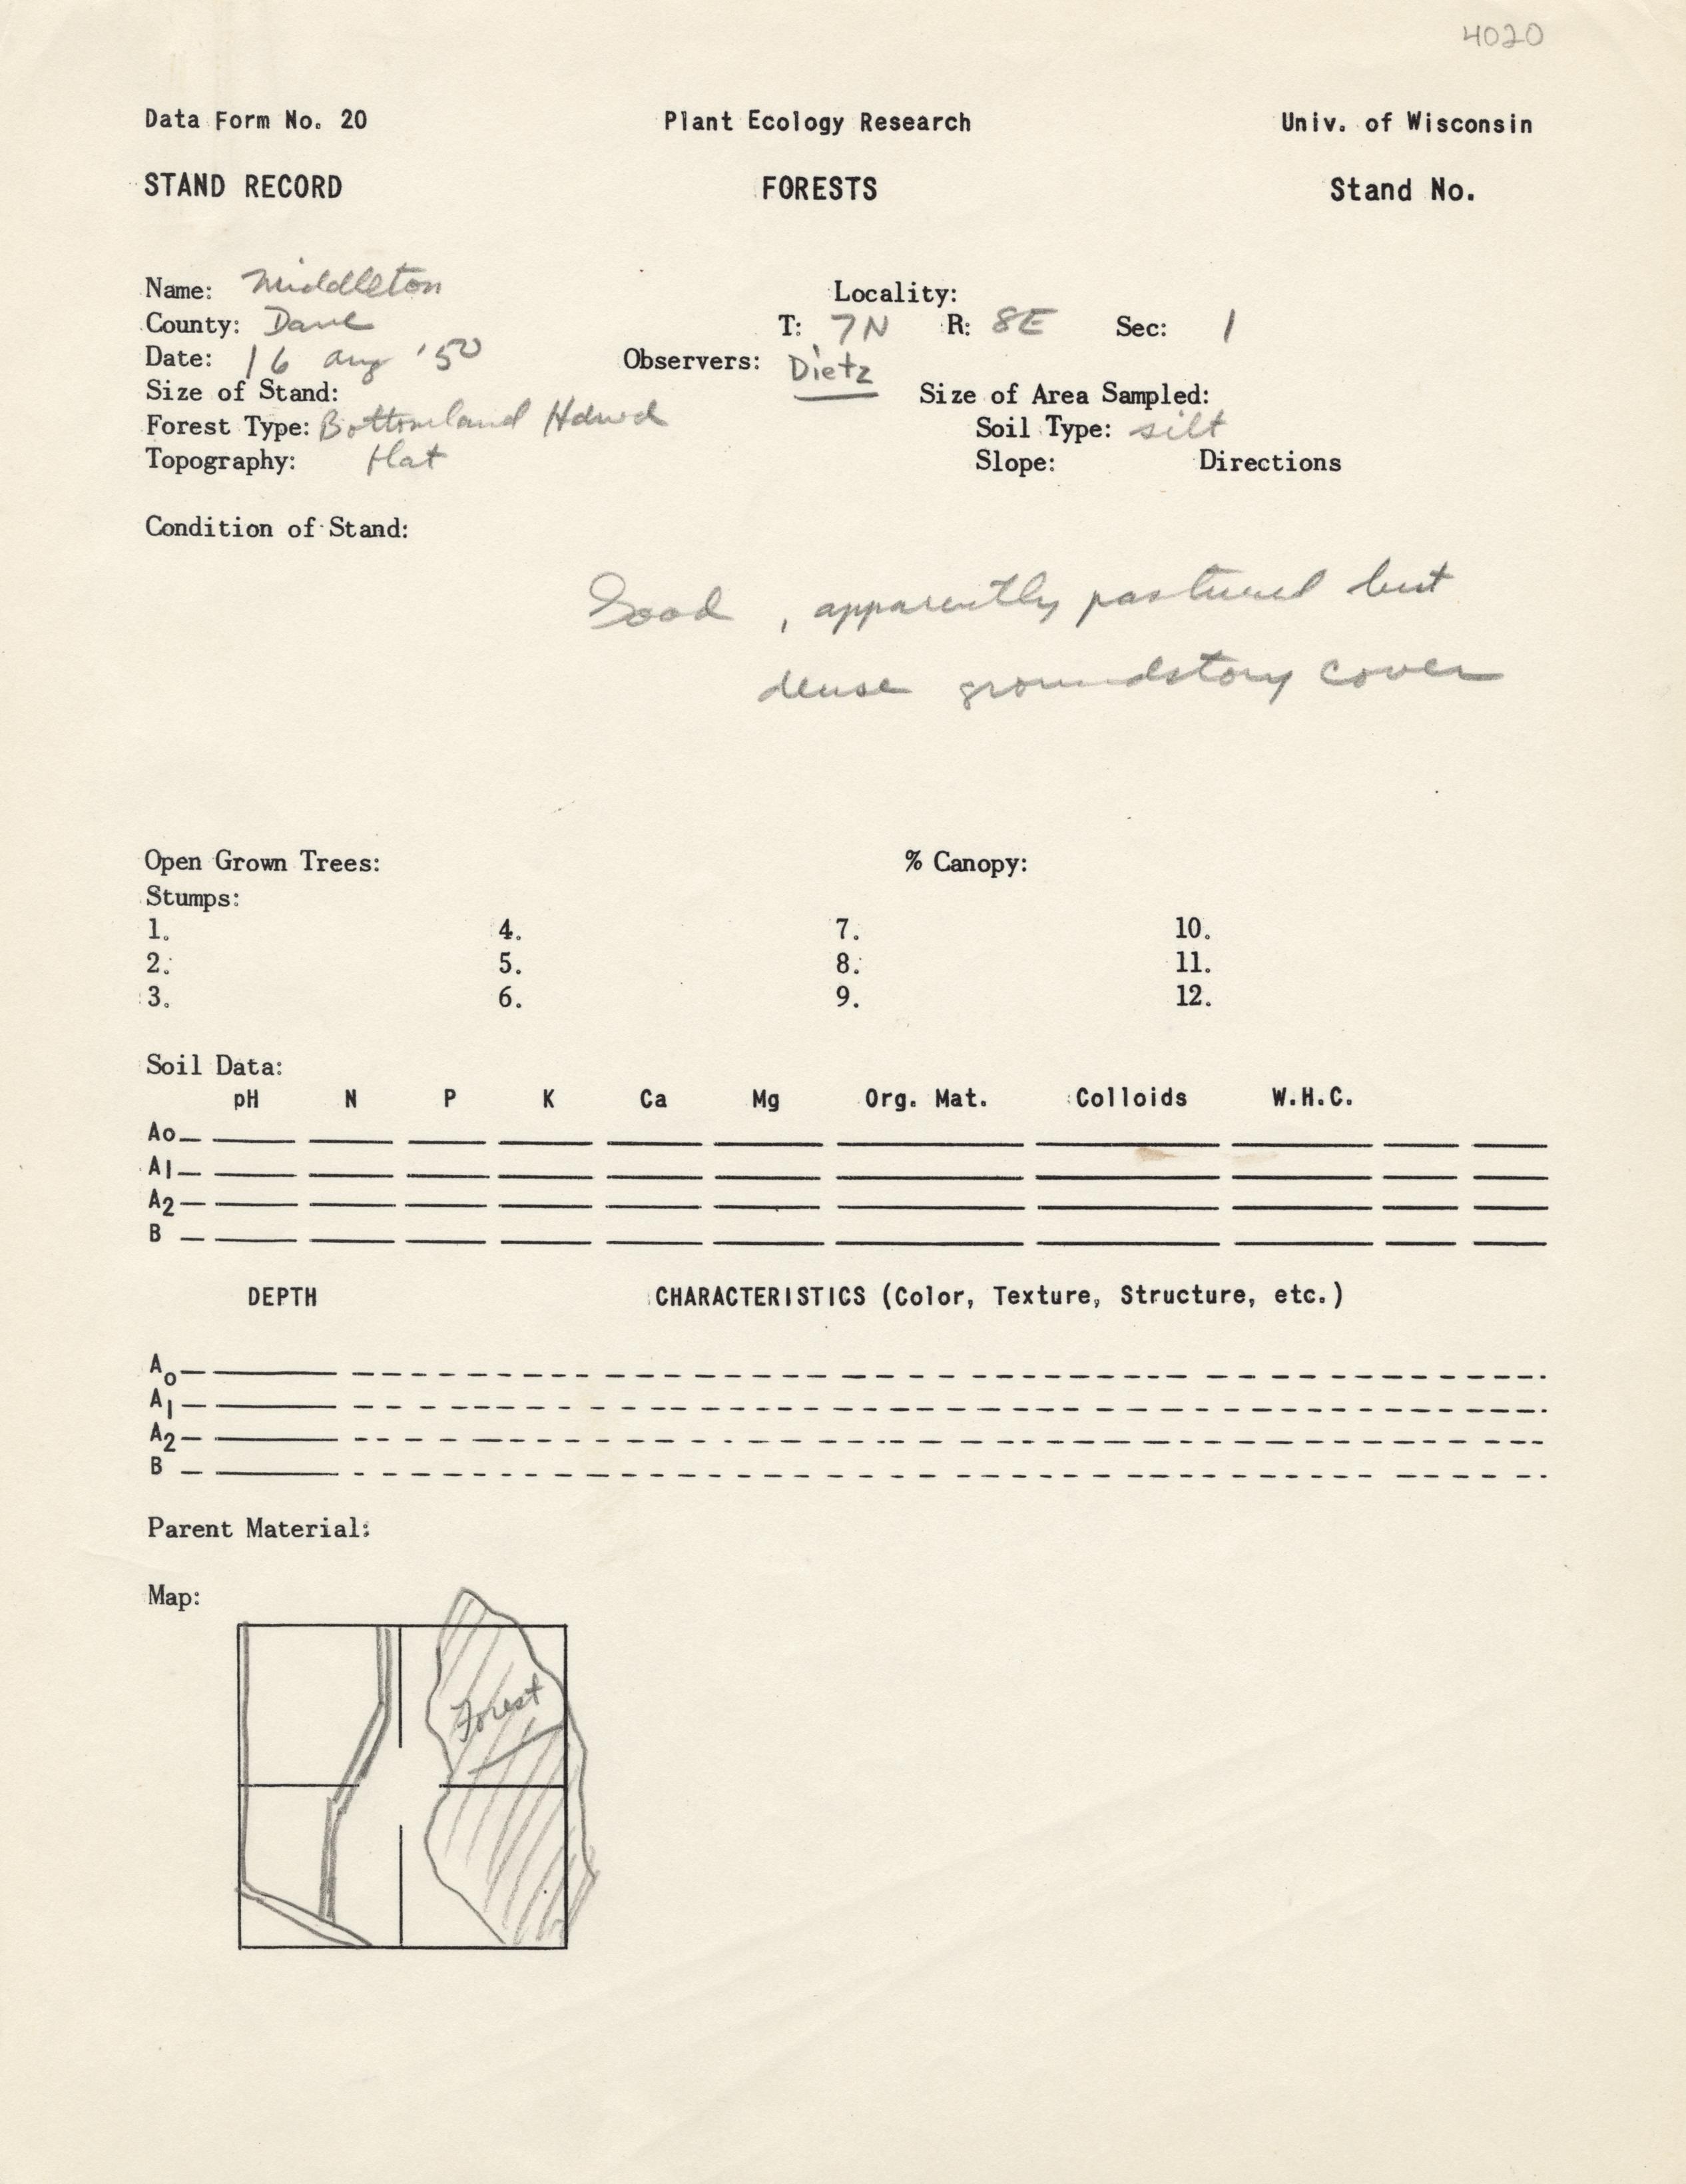 4020
Data Form No. 20 Plant Ecology Research Univ. of Wisconsin
STAND RECORD FORESTS Stand No.
Name: Middleton Locality:
County: Dane T: 7N R: 8E Sec: 1
Date: 16 Aug '50 Observers: Dietz
Size of Stand: Size of Area Sampled:
Forest Type: Bottomland Hdwd Soil Type: silt
Topography: flat Slope: Directions
Condition of Stand:
Good, apparently pastured but
dense groundstory cover
Open Grown Trees: % Canopy:
Stumps:
1. 4. 7. 10.
2. 5. 8. 11.
3. 6. 9. 12.
Soil Data:
pH N P K Ca Mg Org. Mat. Colloids W.H.C.
Ao
A1
A2
B
DEPTH CHARACTERISTICS (Color, Texture, Structure, etc.)
Ao
A1
A2
B
Parent Material:
Map:
Forest